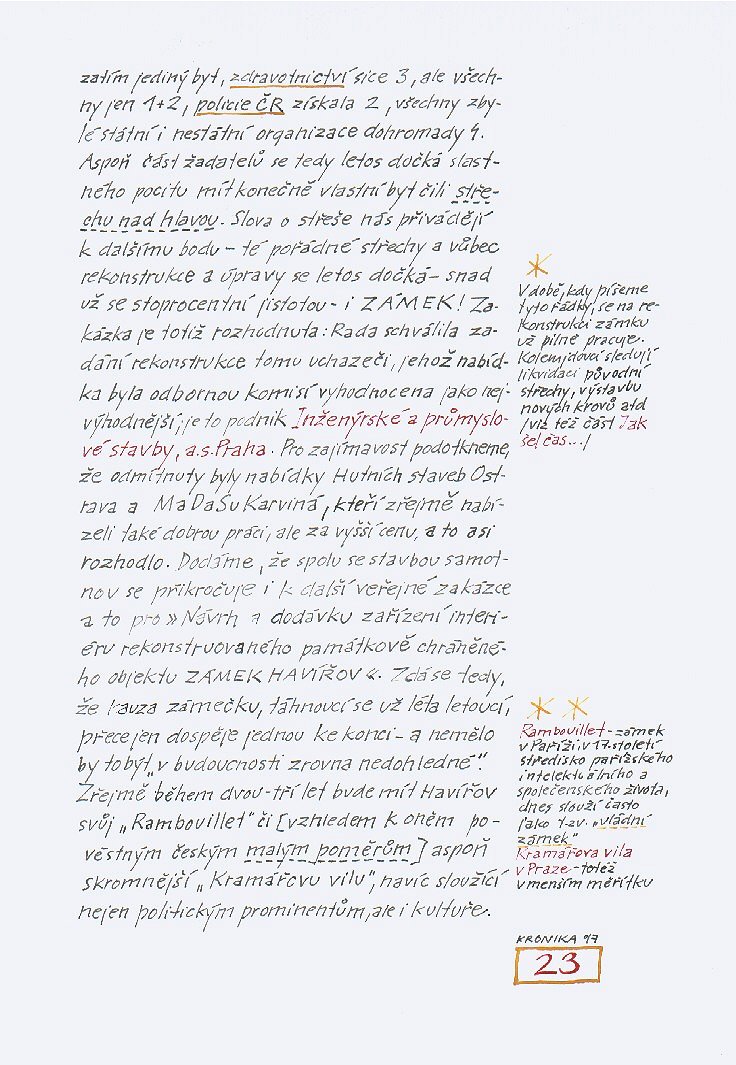 zatím jediný byt, zdravotnictví sice 3, ale všech-
ny jen 1+2, policie ČR získala 2, všechny zby-
lé státní i nestátní organizace dohromady 4.
Aspoň část žadatelů se tedy letos dočká slast-
ného pocitu mít konečně vlastní byt čili stře-
chu nad hlavou. Slova o střeše nás přivádějí
k dalšímu bodu – té pořádné střechy a vůbec
rekonstrukce a úpravy se letos dočká – snad
už se stoprocentní jistotou – i ZÁMEK! Za-
kázka je totiž rozhodnuta: Rada schválila za-
dání rekonstrukce tomu uchazeči, jehož nabíd-
ka byla odbornou komisí vyhodnocena jako nej-
výhodnější; je to podnik Inženýrské a průmyslo-
vé stavby, a.s. Praha. Pro zajímavost podotkneme,
že odmítnuty byly nabídky Hutních staveb Ost-
rava a MaDaSu Karviná, kteří zřejmě nabí-
zeli také dobrou práci, ale za vyšší cenu, a to asi
rozhodlo. Dodáme, že spolu se stavbou samot-
nou se přikročuje i k další veřejné zakázce
a to pro » Návrh a dodávku zařízení interi-
éru rekonstruovaného památkově chráněné-
ho objektu ZÁMEK HAVÍŘOV «. Zdá se tedy,
že kauza zámečku, táhnoucí se už léta letoucí,
přece jen dospěje jednou ke konci – a nemělo
by to být „v budoucnosti zrovna nedohledné“.
Zřejmě během dvou-tří let bude mít Havířov
svůj „Rambouillet“ či [vzhledem k oněm po-
věstným českým malým poměrům] aspoň
skromnější „Kramářovu vilu“, navíc sloužící
nejen politickým prominentům, ale i kultuře.
*
V době, kdy píšeme
tyto řádky, se na re-
konstrukci zámku
už pilně pracuje.
Kolemjdoucí sledují
likvidaci původní
střechy, výstavbu
nových krovů atd
/viz též část Jak
šel čas.../
* *
Rambouillet – zámek
v Paříži, v 17. století
středisko pařížského
intelektuálního a
společenského života,
dnes slouží často
jako t.zv. „vládní
zámek“
Kramářova vila
v Praze – totéž
v menším měřítku
KRONIKA 97
23